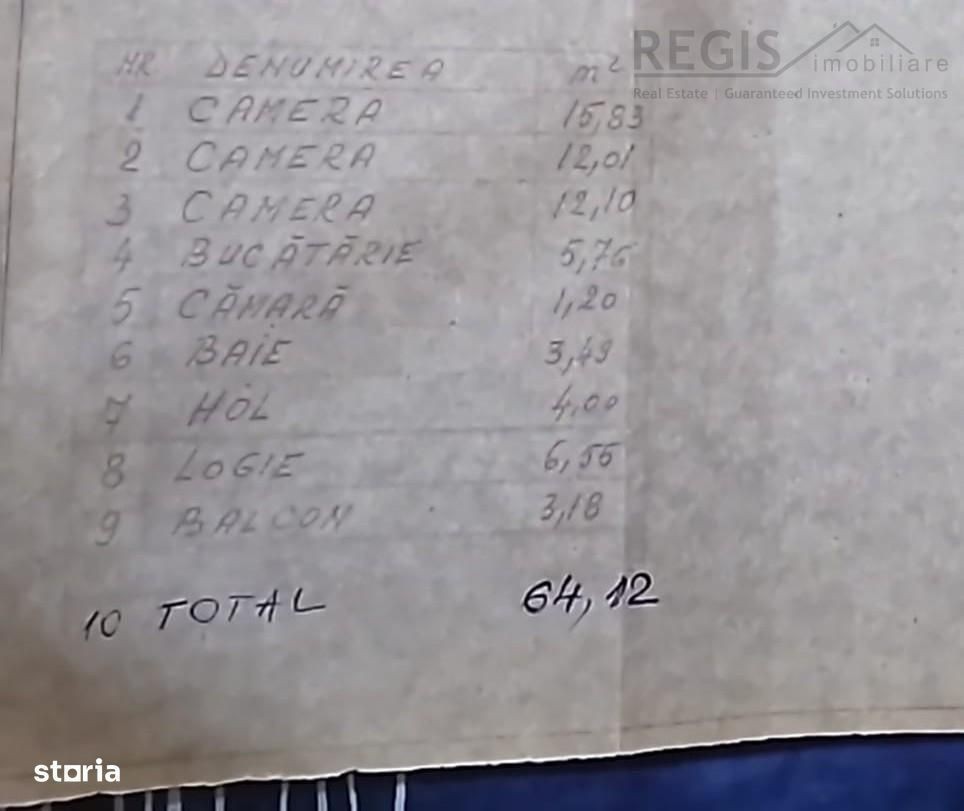 REGIS imobiliare
Real Estate | Guaranteed Investment Solutions
NR DENUMIREA m²
1 CAMERA 15,83
2 CAMERA 12,01
3 CAMERA 12,10
4 BUCĂTĂRIE 5,76
5 CĂMARĂ 1,20
6 BAIE 3,49
7 HOL 4,00
8 LOGIE 6,55
9 BALCON 3,18
10 TOTAL 64,12
storia